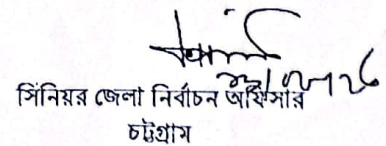 সিনিয়র জেলা নির্বাচন অফিসার
চট্টগ্রাম